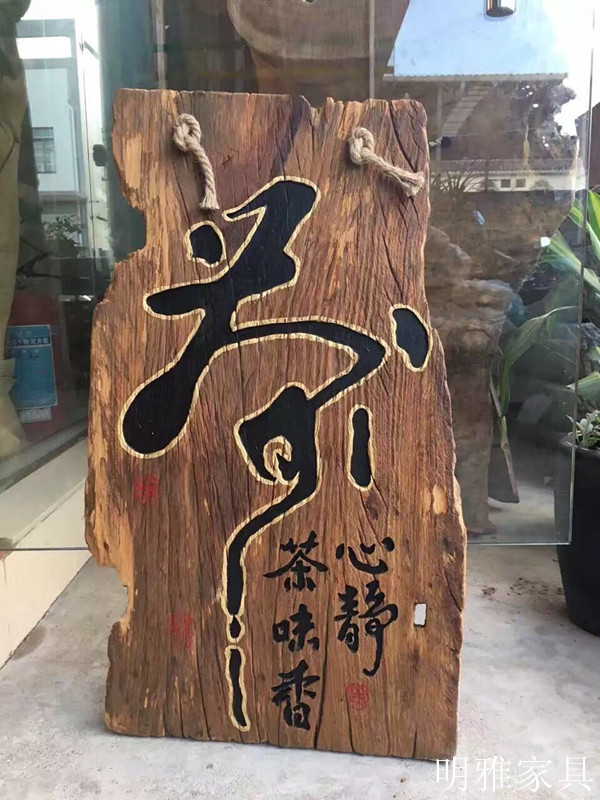 心静
茶味香
明雅家具